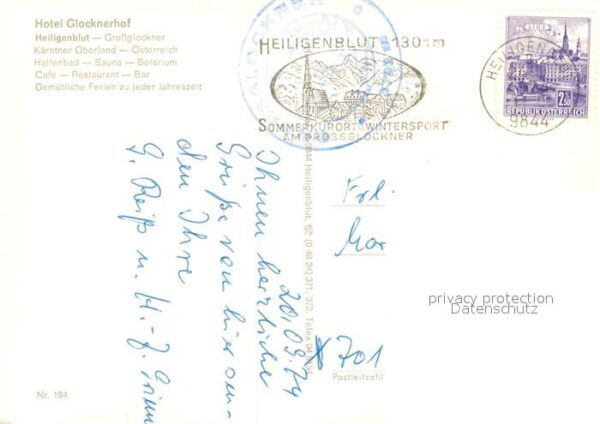 Hotel Glocknerhof
Heiligenblut — Großglockner
Kärntner Oberland — Österreich
Hallenbad — Sauna — Solarium
Cafe — Restaurant — Bar
Gemütliche Ferien zu jeder Jahreszeit
HEILIGENBLUT 1301m
SOMMERKURORT U WINTERSPORT
AM GROSSGLOCKNER
9844
2.50
REPUBLIK ÖSTERREICH
9844 Heiligenblut,
371, 372, Telex
20.09.74
Ihnen herzliche
Grüße von hier sen-
den Ihre
G. Reiß u. H.-J.
Frl.
Mar
701
Postleitzahl
privacy protection
Datenschutz
Nr. 184